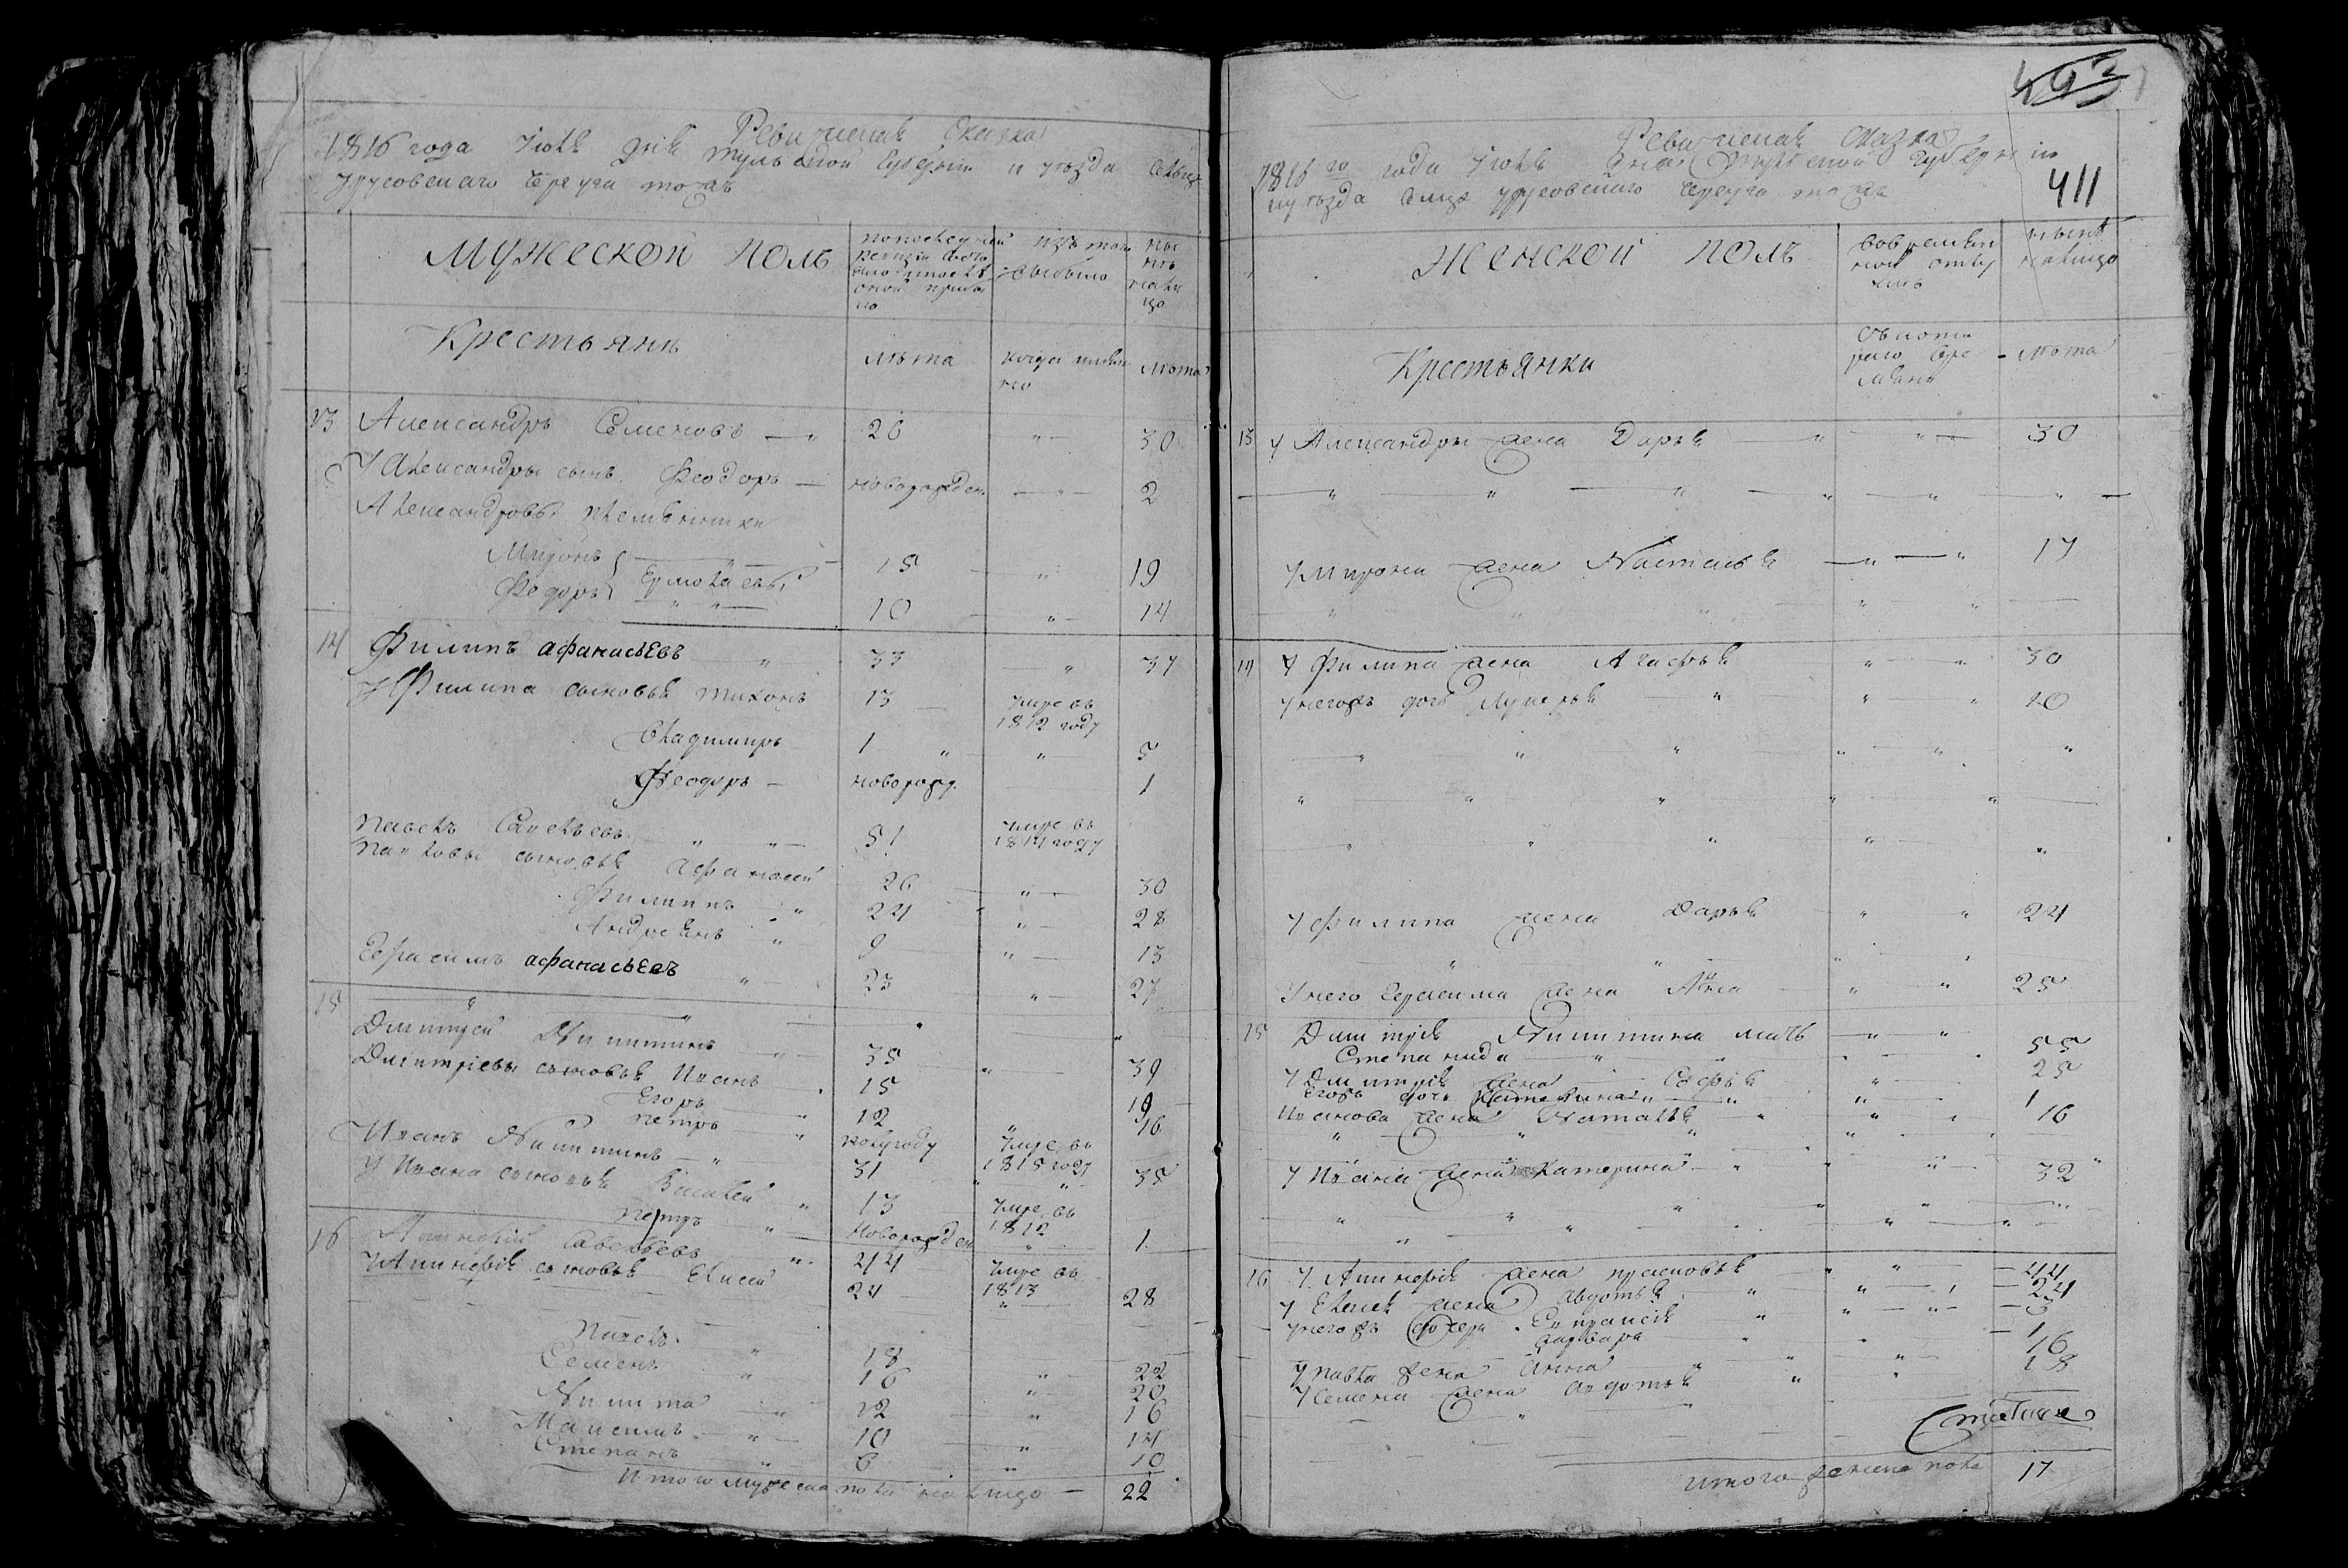 Ревизская Сказка
1816 года Июля дня тульской Губернии и уезда сельца
Урусовского Чергуга тожъ
Мужеской полъ
по последней ревизии состояло и после оной прибыло
изъ того выбыло
ныне налицо
Крестьяне
лета
когда именно
лета
13 Александръ Семеновъ 26 30
У Александры сынъ Феодоръ новорожден. 2
Александровы племянники
Миронъ 15 19
Федоръ Ермолаевы 10 14
14 Филипъ афанасьевъ 33 37
У Филипа сыновья тихонъ 13 умре въ 1812 году
Владимиръ 1 5
Феодоръ новорожд. 1
Павелъ Савельевъ 51 умре въ 1814 году
Павловы сыновья Афанасей 26 30
Филипъ 24 28
Андреянъ 9 13
Герасимъ афанасьевъ 23 27
15
Дмитрей Никитинъ 35 39
Дмитриевы сыновья Иванъ 15 19
Егоръ 12 16
петръ полугоду умре въ 1815 году
Иванъ Никитинъ 31 35
У Ивана сыновья Василей 13 умре въ 1812
петръ новорожден 1
16 Савельевъ 44 умре въ 1813
сыновья Елисей 24 28
Павелъ 18 22
Семенъ 16 20
Никита 12 16
Максимъ 10 14
Степанъ 6 10
Итого мужеска пола налицо 22
493
411
Ревизская Сказка
1816 го года Июля дня Тульской губернии
и уезда Сельца Урусовского Чергуга тожъ
Женской полъ
во временной отлучке
ныне налицо
Крестьянки
съ котораго времени
лета
13 У Александры жена Дарья 30
У Мирона жена Наталья 17
14 У Филипа жена Агафья 30
У него жъ дочь Лукерья 10
У Филипа жена Дарья 24
У него Герасима жена Анна 25
15 Дмитрия Никитина мать
Степанида 55
У Дмитрия жена Софья 25
Егоръ дочь 1
Иванова жена Наталья 16
У Ивана жена Катерина 32
16 У жена прасковья 44
У Елисея жена Авдотья 24
У него жъ дочери 3
Варвара 1
У Павла жена Анна 16
У Семена жена Авдотья 18
Итого женска пола 17